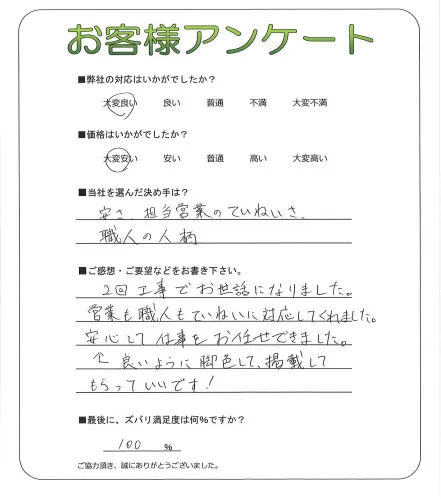 お客様アンケート
■弊社の対応はいかがでしたか?
大変良い 良い 普通 不満 大変不満
■価格はいかがでしたか?
大変安い 安い 普通 高い 大変高い
■当社を選んだ決め手は?
安さ、担当営業のていねいさ、
職人の人柄
■ご感想・ご要望などをお書き下さい。
2回工事でお世話になりました。
営業も職人もていねいに対応してくれました。
安心して仕事をお任せできました。
↑良いように脚色して、掲載して
もらっていいです!
■最後に、ズバリ満足度は何%ですか?
100 %
ご協力頂き、誠にありがとうございました。